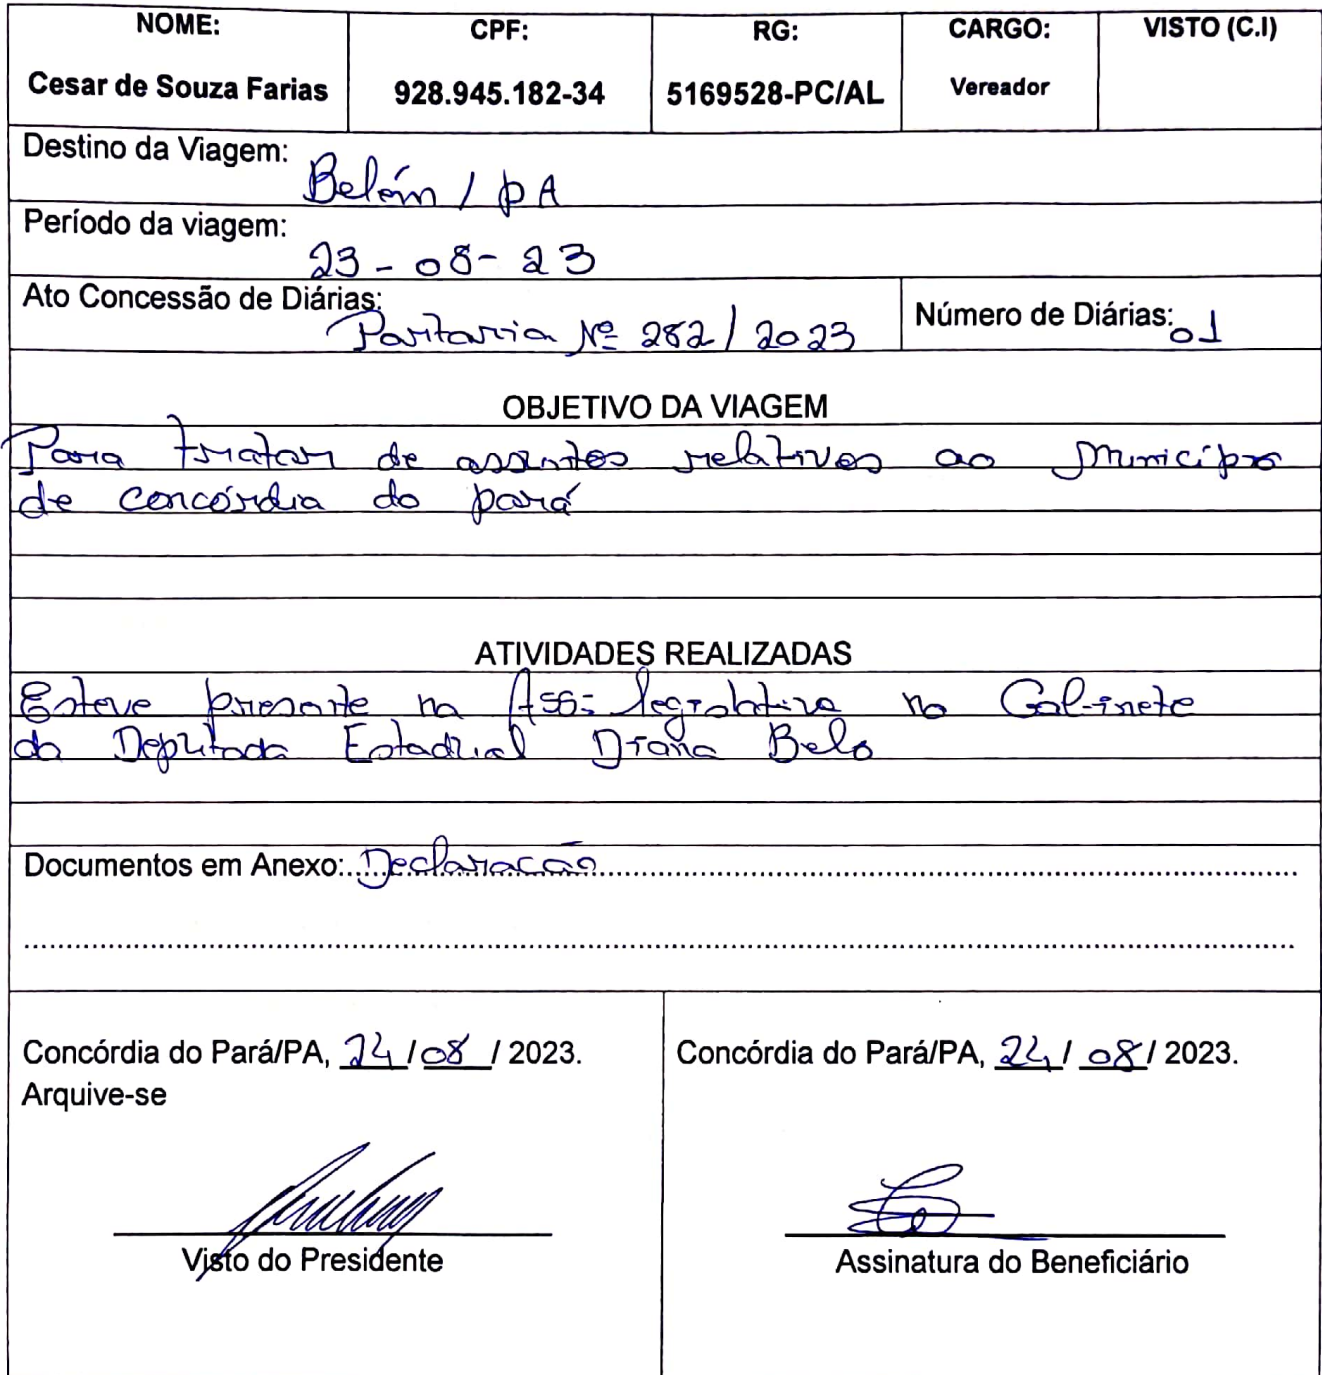 NOME: CPF: RG: CARGO: VISTO (C.I)
Cesar de Souza Farias 928.945.182-34 5169528-PC/AL Vereador
Destino da Viagem: Belém / PA
Período da viagem: 23-08-23
Ato Concessão de Diárias: Portaria Nº 282/2023 Número de Diárias: 01
OBJETIVO DA VIAGEM
Para tratar de assuntos relativos ao Município
de concórdia do pará
ATIVIDADES REALIZADAS
Esteve presente na Ass: legislativa no Gabinete
da Deputada Estadual Diana Belo
Documentos em Anexo: Declaração
Concórdia do Pará/PA, 24/08/2023. Concórdia do Pará/PA, 24/08/2023.
Arquive-se
Visto do Presidente Assinatura do Beneficiário